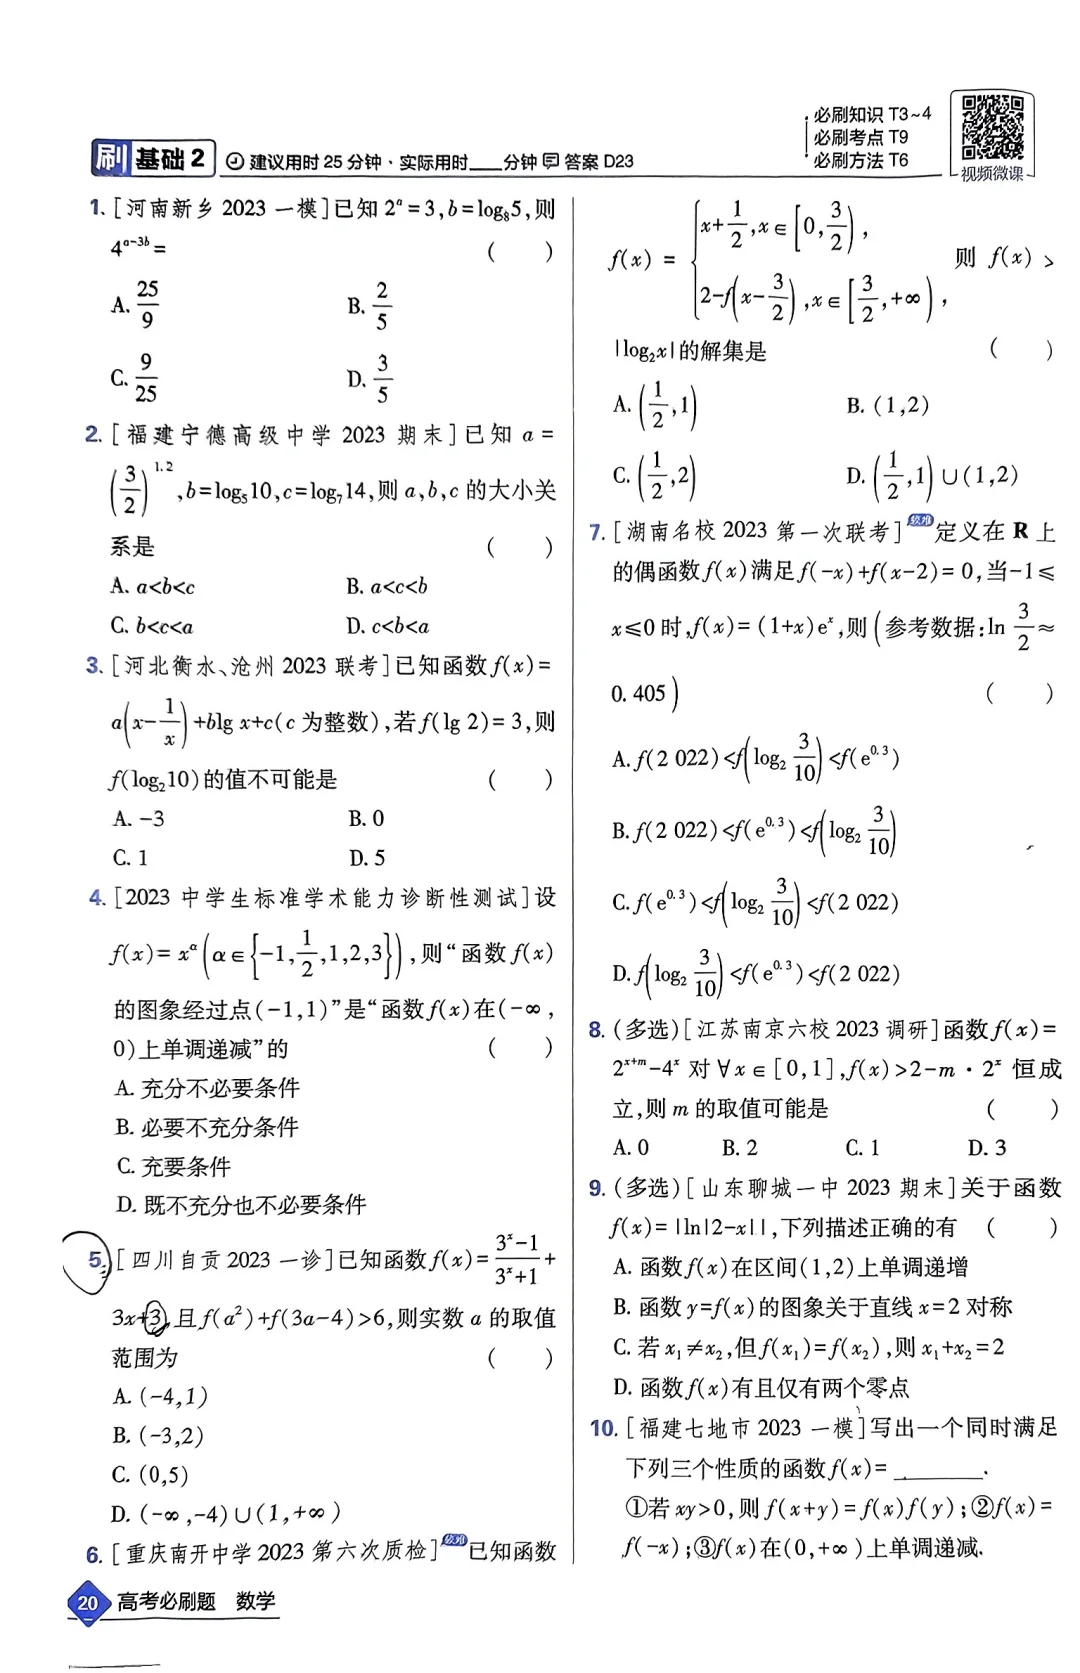 必刷知识 T3~4
必刷考点 T9
必刷方法 T6
视频微课
刷 基础2 建议用时25分钟·实际用时___分钟 答案 D23
1. [河南新乡 2023 一模]已知 2ᵃ=3,b=log₈5,则
4ᵃ⁻³ᵇ= ( )
A. 25/9 B. 2/5
C. 9/25 D. 3/5
2. [福建宁德高级中学 2023 期末]已知 a=
(3/2)^1.2,b=log₅10,c=log₇14,则 a,b,c 的大小关
系是 ( )
A. a<b<c B. a<c<b
C. b<c<a D. c<b<a
3. [河北衡水、沧州 2023 联考]已知函数 f(x)=
a(x-1/x)+blg x+c(c 为整数),若 f(lg 2)=3,则
f(log₂10)的值不可能是 ( )
A. -3 B. 0
C. 1 D. 5
4. [2023 中学生标准学术能力诊断性测试]设
f(x)=x^α(α∈{-1,1/2,1,2,3}),则“函数 f(x)
的图象经过点(-1,1)”是“函数 f(x)在(-∞,
0)上单调递减”的 ( )
A. 充分不必要条件
B. 必要不充分条件
C. 充要条件
D. 既不充分也不必要条件
5. [四川自贡 2023 一诊]已知函数 f(x)=(3ˣ-1)/(3ˣ+1)+
3x+3,且 f(a²)+f(3a-4)>6,则实数 a 的取值
范围为 ( )
A. (-4,1)
B. (-3,2)
C. (0,5)
D. (-∞,-4)∪(1,+∞)
6. [重庆南开中学 2023 第六次质检]较难 已知函数
f(x)={x+1/2,x∈[0,3/2), 2-f(x-3/2),x∈[3/2,+∞), 则 f(x)>
|log₂x|的解集是 ( )
A. (1/2,1) B. (1,2)
C. (1/2,2) D. (1/2,1)∪(1,2)
7. [湖南名校 2023 第一次联考]较难 定义在 R 上
的偶函数 f(x)满足 f(-x)+f(x-2)=0,当-1≤
x≤0 时,f(x)=(1+x)eˣ,则(参考数据:ln 3/2≈
0.405) ( )
A. f(2 022)<f(log₂ 3/10)<f(e^0.3)
B. f(2 022)<f(e^0.3)<f(log₂ 3/10)
C. f(e^0.3)<f(log₂ 3/10)<f(2 022)
D. f(log₂ 3/10)<f(e^0.3)<f(2 022)
8. (多选)[江苏南京六校 2023 调研]函数 f(x)=
2ˣ⁺ᵐ-4ˣ 对 ∀x∈[0,1],f(x)>2-m·2ˣ 恒成
立,则 m 的取值可能是 ( )
A. 0 B. 2 C. 1 D. 3
9. (多选)[山东聊城一中 2023 期末]关于函数
f(x)=|ln|2-x||,下列描述正确的有 ( )
A. 函数 f(x)在区间(1,2)上单调递增
B. 函数 y=f(x)的图象关于直线 x=2 对称
C. 若 x₁≠x₂,但 f(x₁)=f(x₂),则 x₁+x₂=2
D. 函数 f(x)有且仅有两个零点
10. [福建七地市 2023 一模]写出一个同时满足
下列三个性质的函数 f(x)=________.
①若 xy>0,则 f(x+y)=f(x)f(y);②f(x)=
f(-x);③f(x)在(0,+∞)上单调递减.
20 高考必刷题 数学